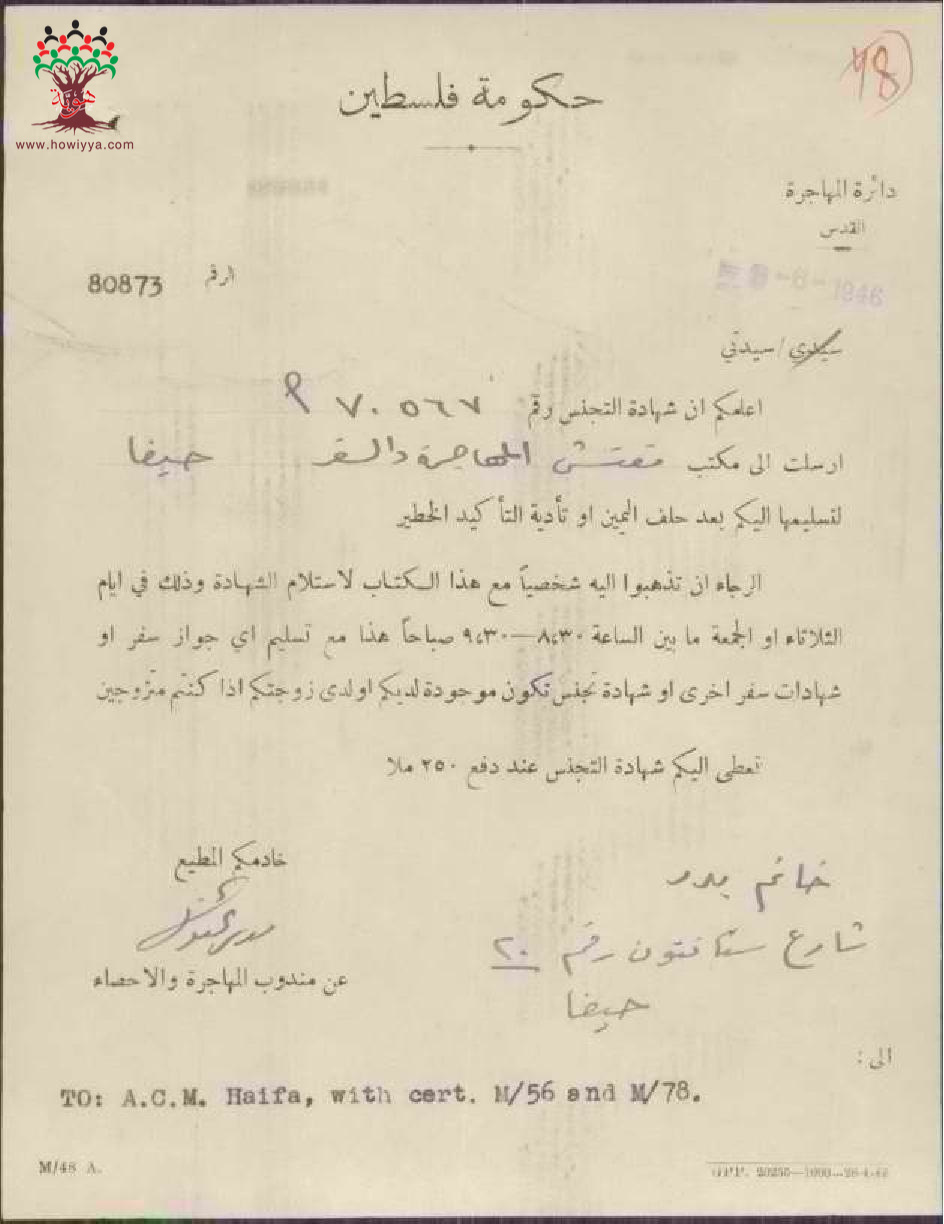 هوية
www.howiyya.com
78
حكومة فلسطين
دائرة المهاجرة
القدس
-6-1946
الرقم 80873
سيدي/سيدتي
اعلمكم ان شهادة التجنس رقم ٧٠٥٦٧
ارسلت الى مكتب مفتش المهاجرة والسفر حيفا
لتسليمها اليكم بعد حلف اليمين او تأدية التأكيد الخطير
الرجاء ان تذهبوا اليه شخصياً مع هذا الكتاب لاستلام الشهادة وذلك في ايام
الثلاثاء او الجمعة ما بين الساعة ٨،٣٠—٩،٣٠ صباحاً هذا مع تسليم اي جواز سفر او
شهادات سفر اخرى او شهادة تجنس تكون موجودة لديكم او لدى زوجتكم اذا كنتم متزوجين
تعطى اليكم شهادة التجنس عند دفع ٢٥٠ ملا
خادمكم المطيع
عن مندوب المهاجرة والاحصاء
خانم بدر
شارع ستانتون رقم ٢٠
حيفا
الى :
TO: A.C.M. Haifa, with cert. M/56 and M/78.
M/48 A.